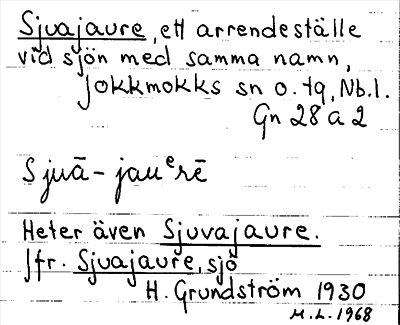 Sjuajaure, ett arrendeställe
vid sjön med samma namn,
Jokkmokks sn o. tg, Nb.l.
Gn 28 a 2
Sjuā-jauᵉrē
Heter även Sjuvajaure.
Jfr. Sjuajaure, sjö
H. Grundström 1930
M.L. 1968